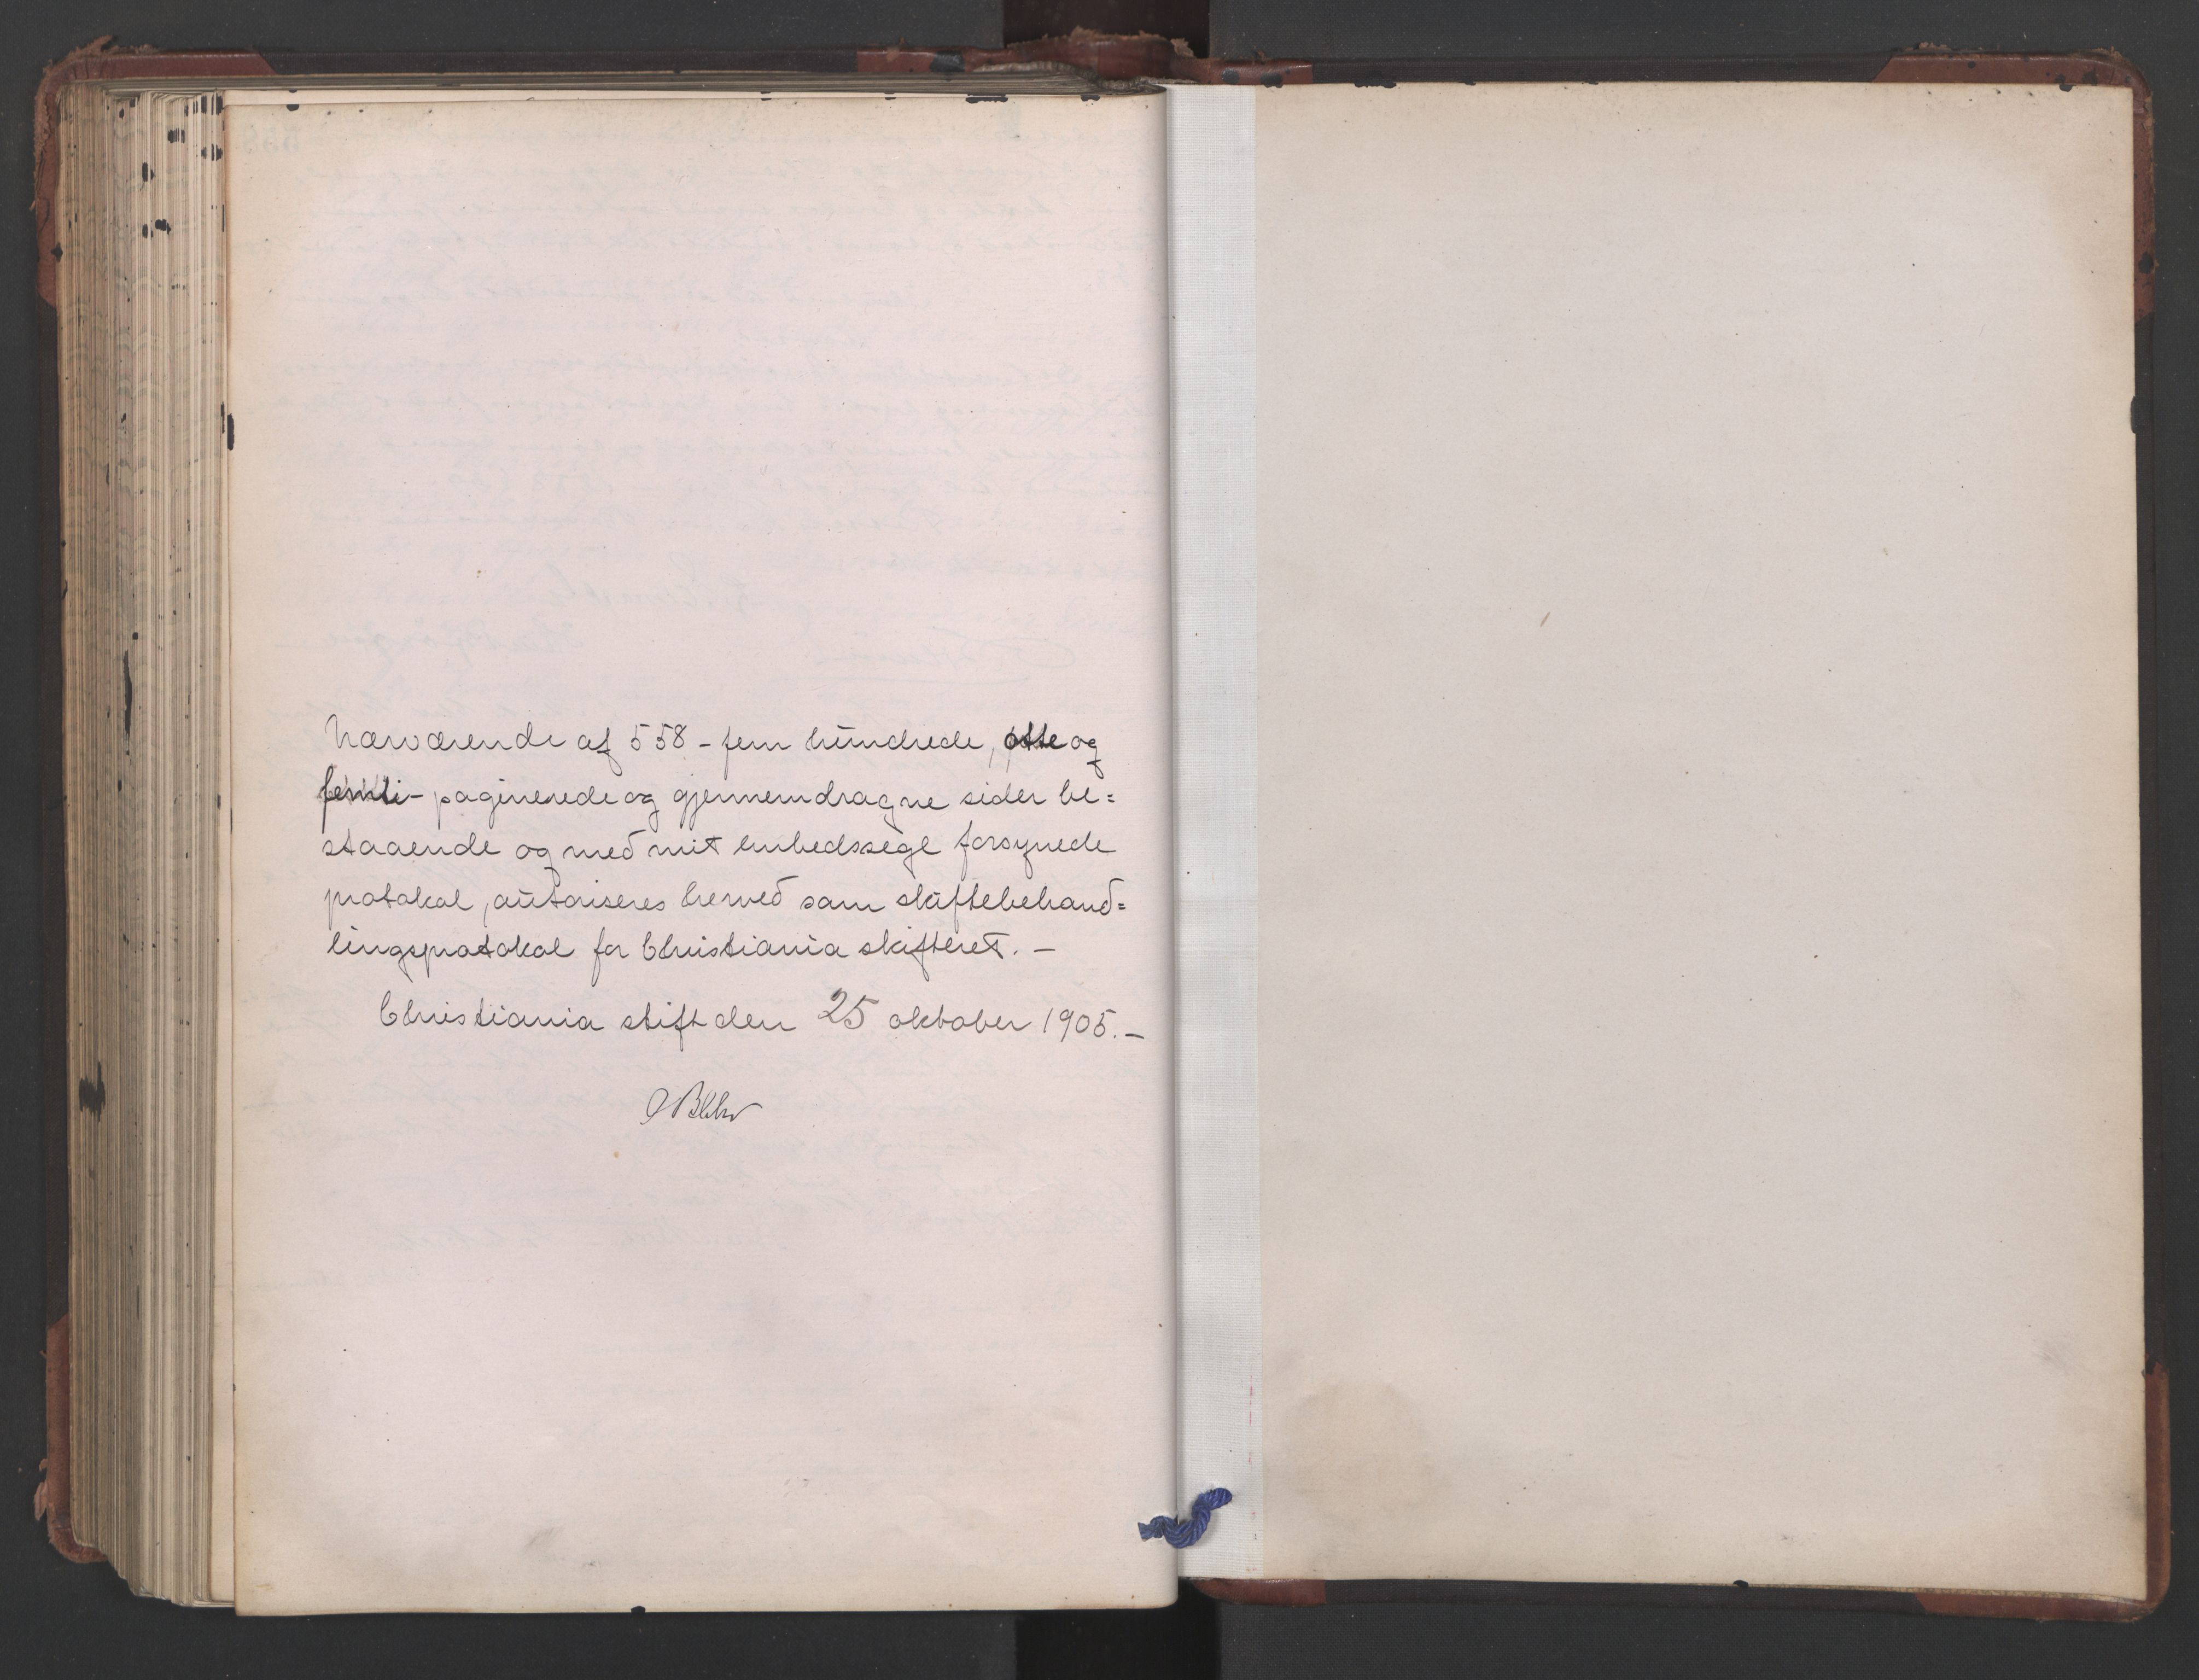 Nærværende af 558 - fem hundrede, otte og
femti - paginerede og gjennemdragne sider be=
staaende og med mit embedssegl forsynede
protokol, autoriseres herved som skiftebehand=
lingsprotokol for Christiania skifteret. -
Christiania stift den 25 oktober 1905. -